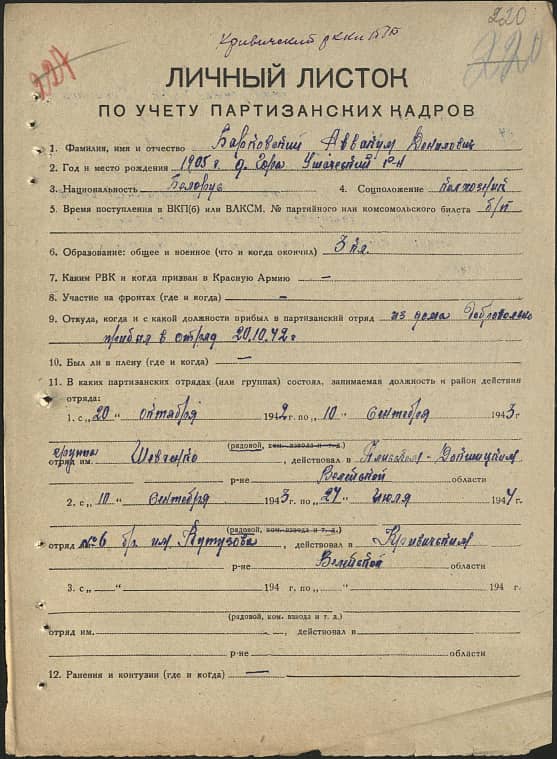 220
227
220
Кривичский рккп(б)б
ЛИЧНЫЙ ЛИСТОК
ПО УЧЕТУ ПАРТИЗАНСКИХ КАДРОВ
1. Фамилия, имя и отчество Барковский Аввакум Данилович
2. Год и место рождения 1905 г. д. Гора Ушачский р-н
3. Национальность Белорус 4. Соцположение колхозник
5. Время поступления в ВКП(б) или ВЛКСМ, № партийного или комсомольского билета б/п
6. Образование: общее и военное (что и когда окончил) 3 кл.
7. Каким РВК и когда призван в Красную Армию —
8. Участие на фронтах (где и когда) —
9. Откуда, когда и с какой должности прибыл в партизанский отряд из дома добровольно
прибыл в отряд 20.10.42 г
10. Был ли в плену (где и когда) —
11. В каких партизанских отрядах (или группах) состоял, занимаемая должность и район действия
отряда:
1. с „20“ октября 1942 г. по „10“ сентября 1943 г.
(рядовой, ком. взвода и т. д.)
группа
отряд им. Шевченко действовал в Плисском-Докшицком
р-не Вилейской области
2. с „10“ сентября 1943 г. по „27“ июля 1944 г.
(рядовой, ком. взвода и т. д.)
отряд №6 бр. им Кутузова, действовал в Кривичском
р-не Вилейской области
3. с „ “ 194 г. по „ “ 194 г.
(рядовой, ком. взвода и т. д.)
отряд им. , действовал в
р-не области
12. Ранения и контузии (где и когда) —